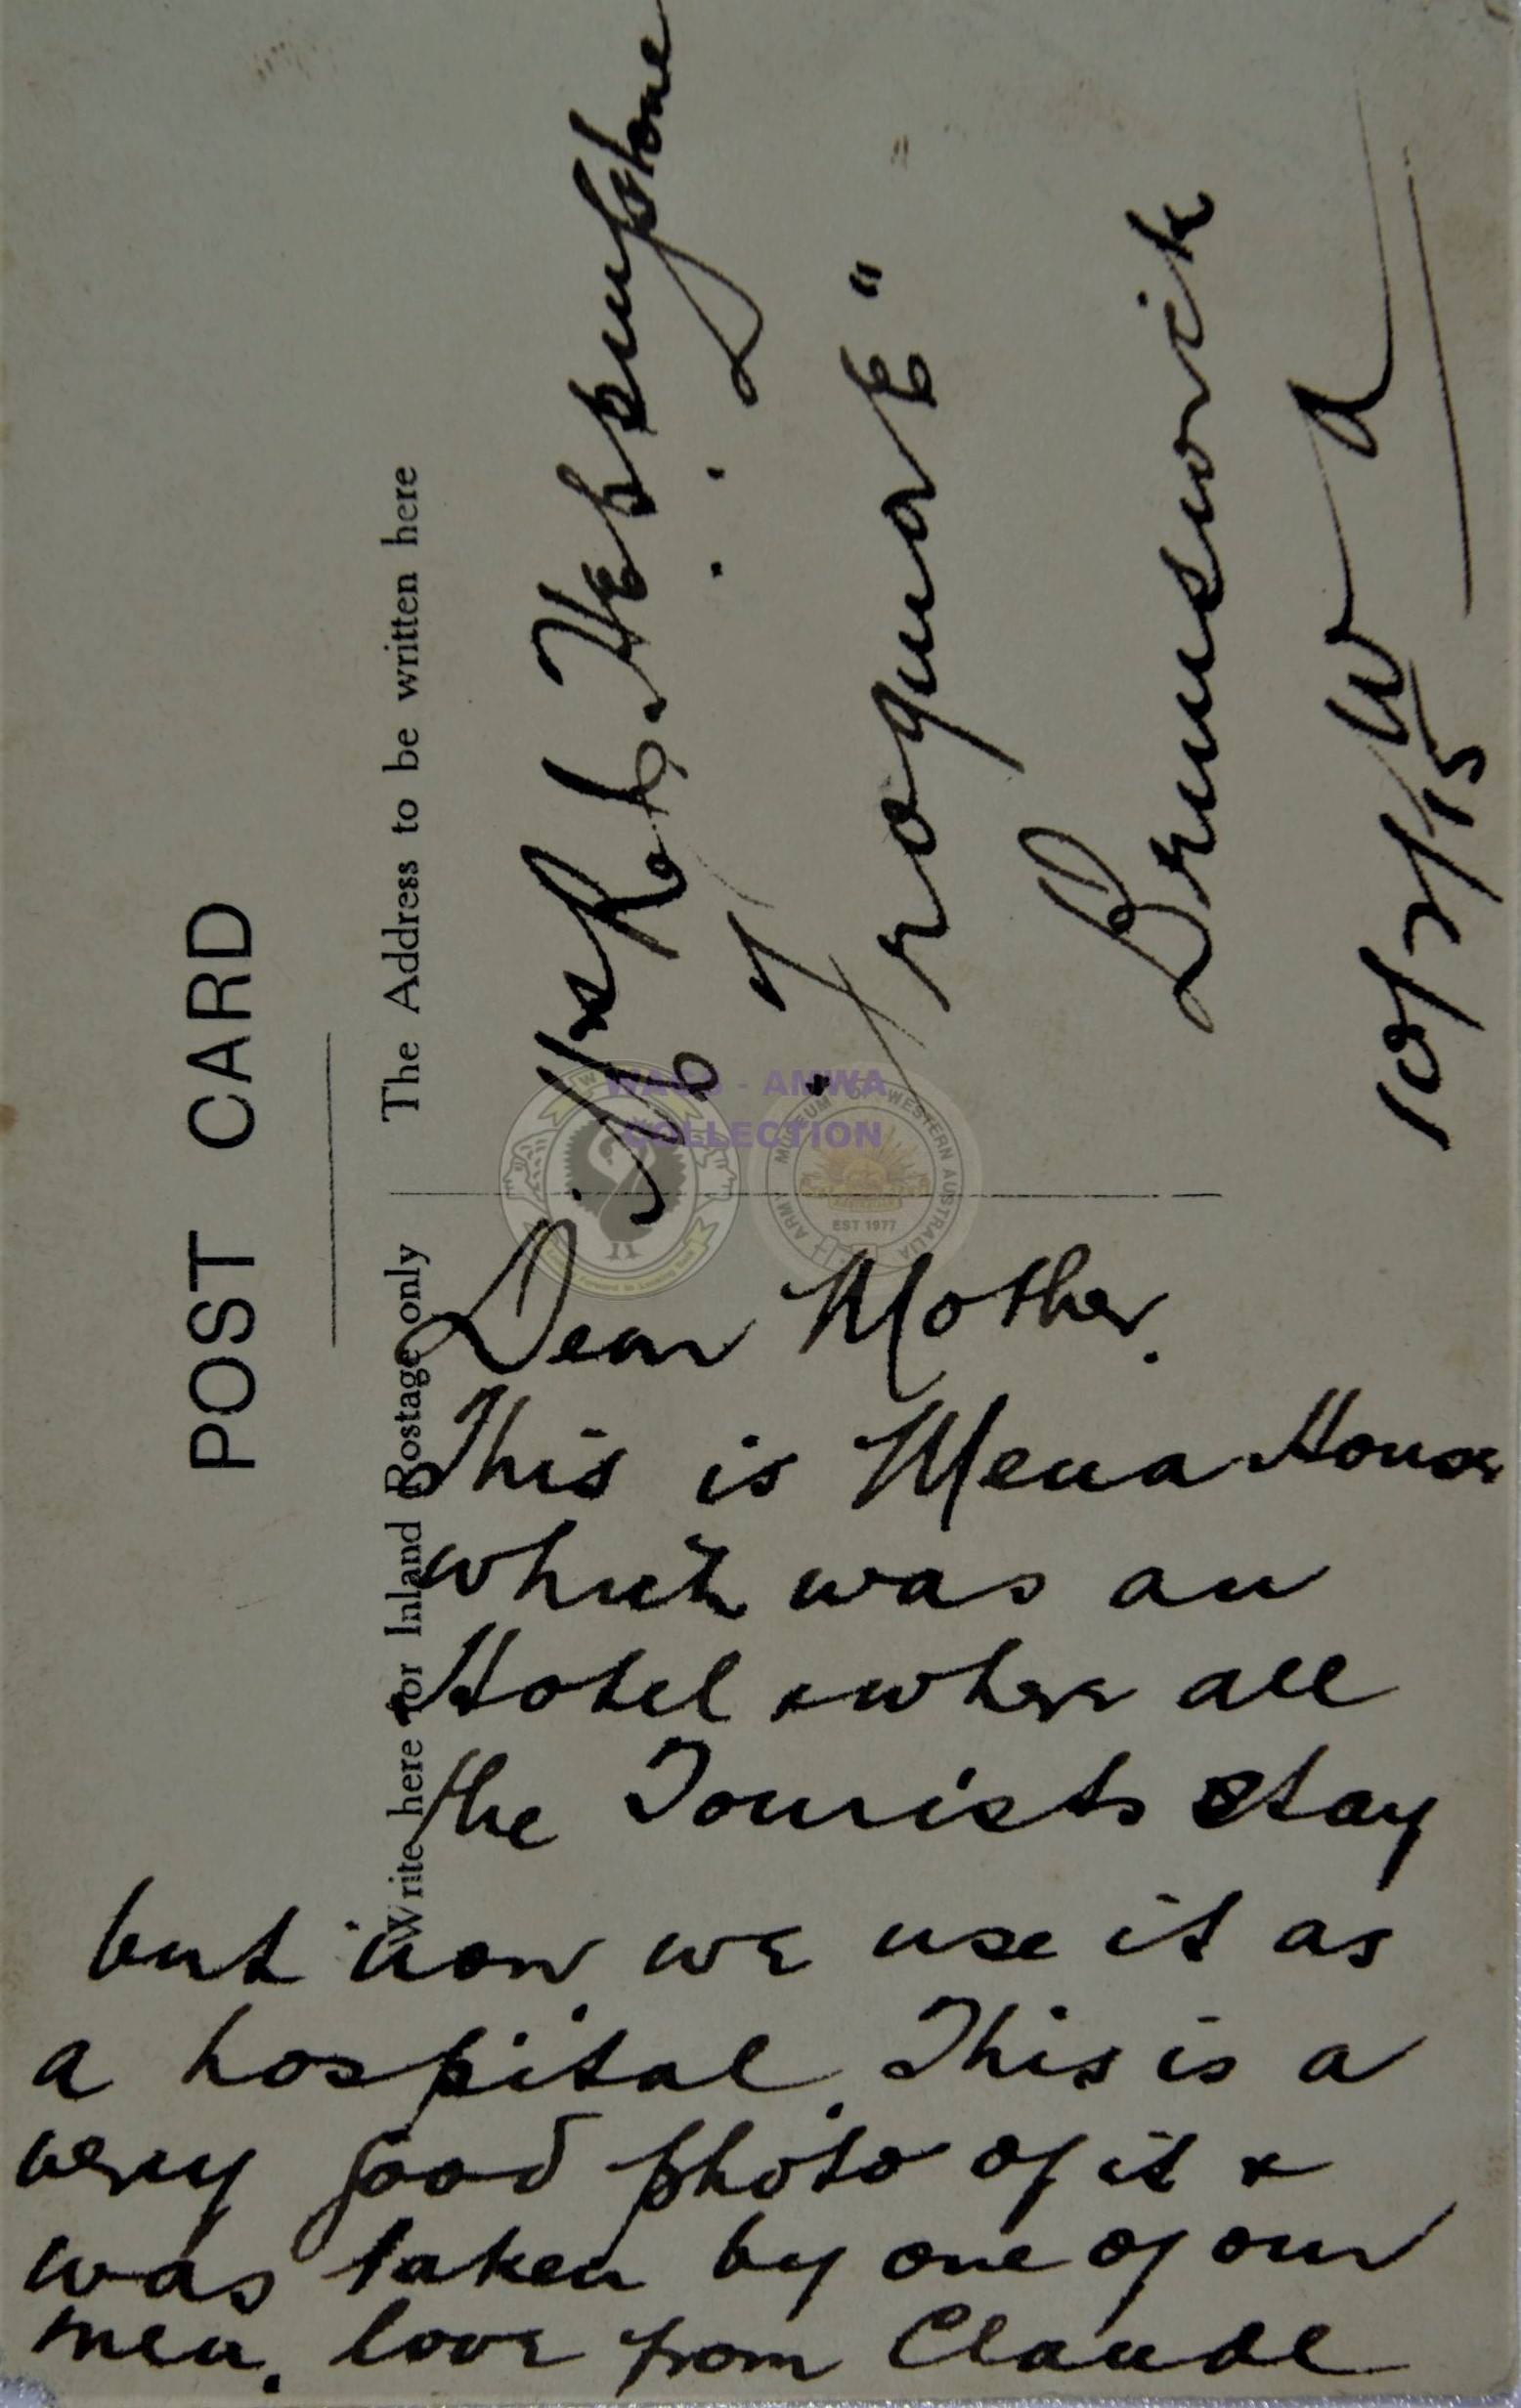 POST CARD
Write here for Inland Postage only
The Address to be written here
Dear Mother.
This is Mena House
which was an
Hotel & where all
the Tourists stay
but now we use it as
a hospital. This is a
very good photo of it &
was taken by one of our
men. love from Claude
Mrs R. L. Heppingstone
"Roquart"
Brunswick
W A
10/2/15
WAGS - AMWA
COLLECTION
ARMY MUSEUM OF WESTERN AUSTRALIA
EST 1977